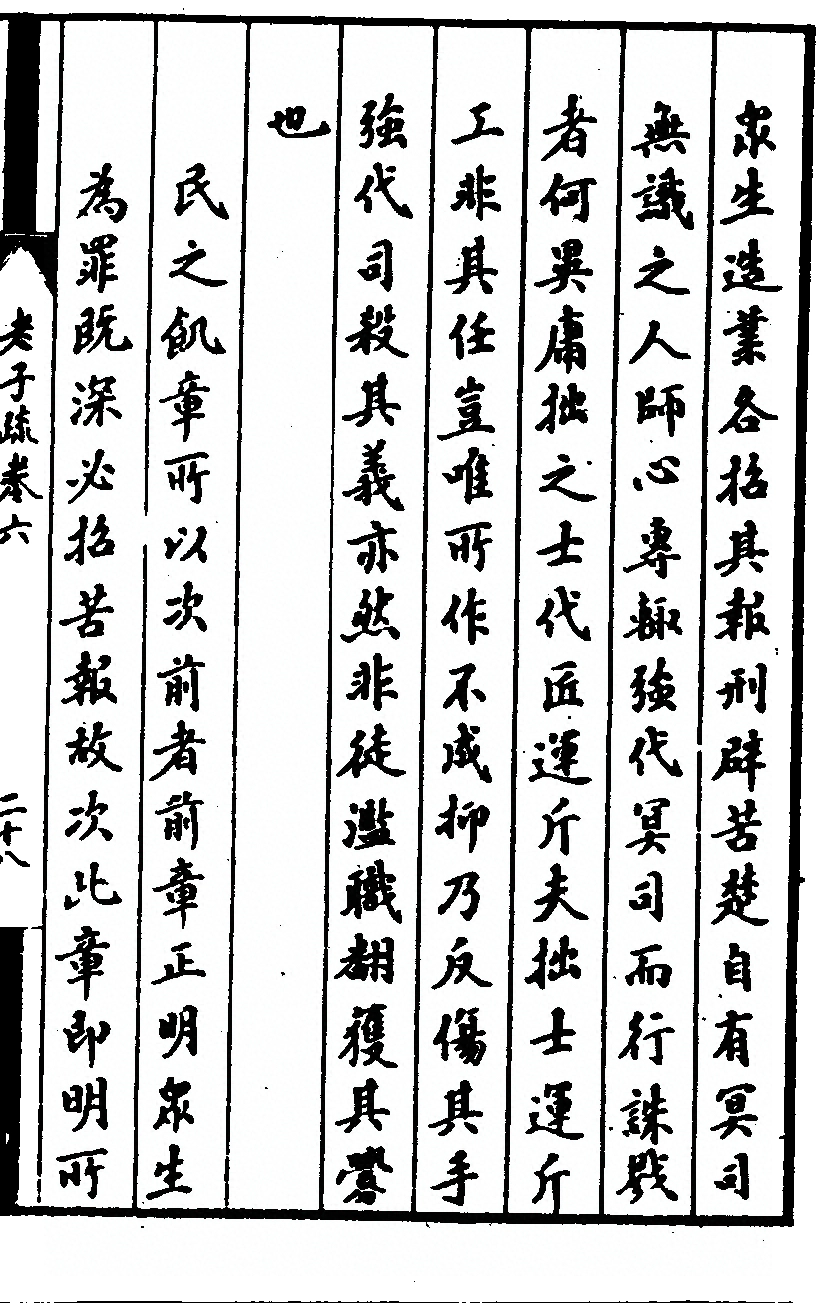 衆生造業各招其報刑辟苦楚自有冥司
無識之人師心專輙強代冥司而行誅戮
者何異庸拙之士代匠運斤夫拙士運斤
工非其任豈唯所作不成抑乃反傷其手
強代司殺其義亦然非徒濫職翻獲其釁
也
民之飢章所以次前者前章正明衆生
為罪既深必招苦報故次此章即明所
老子疏卷六
二十八